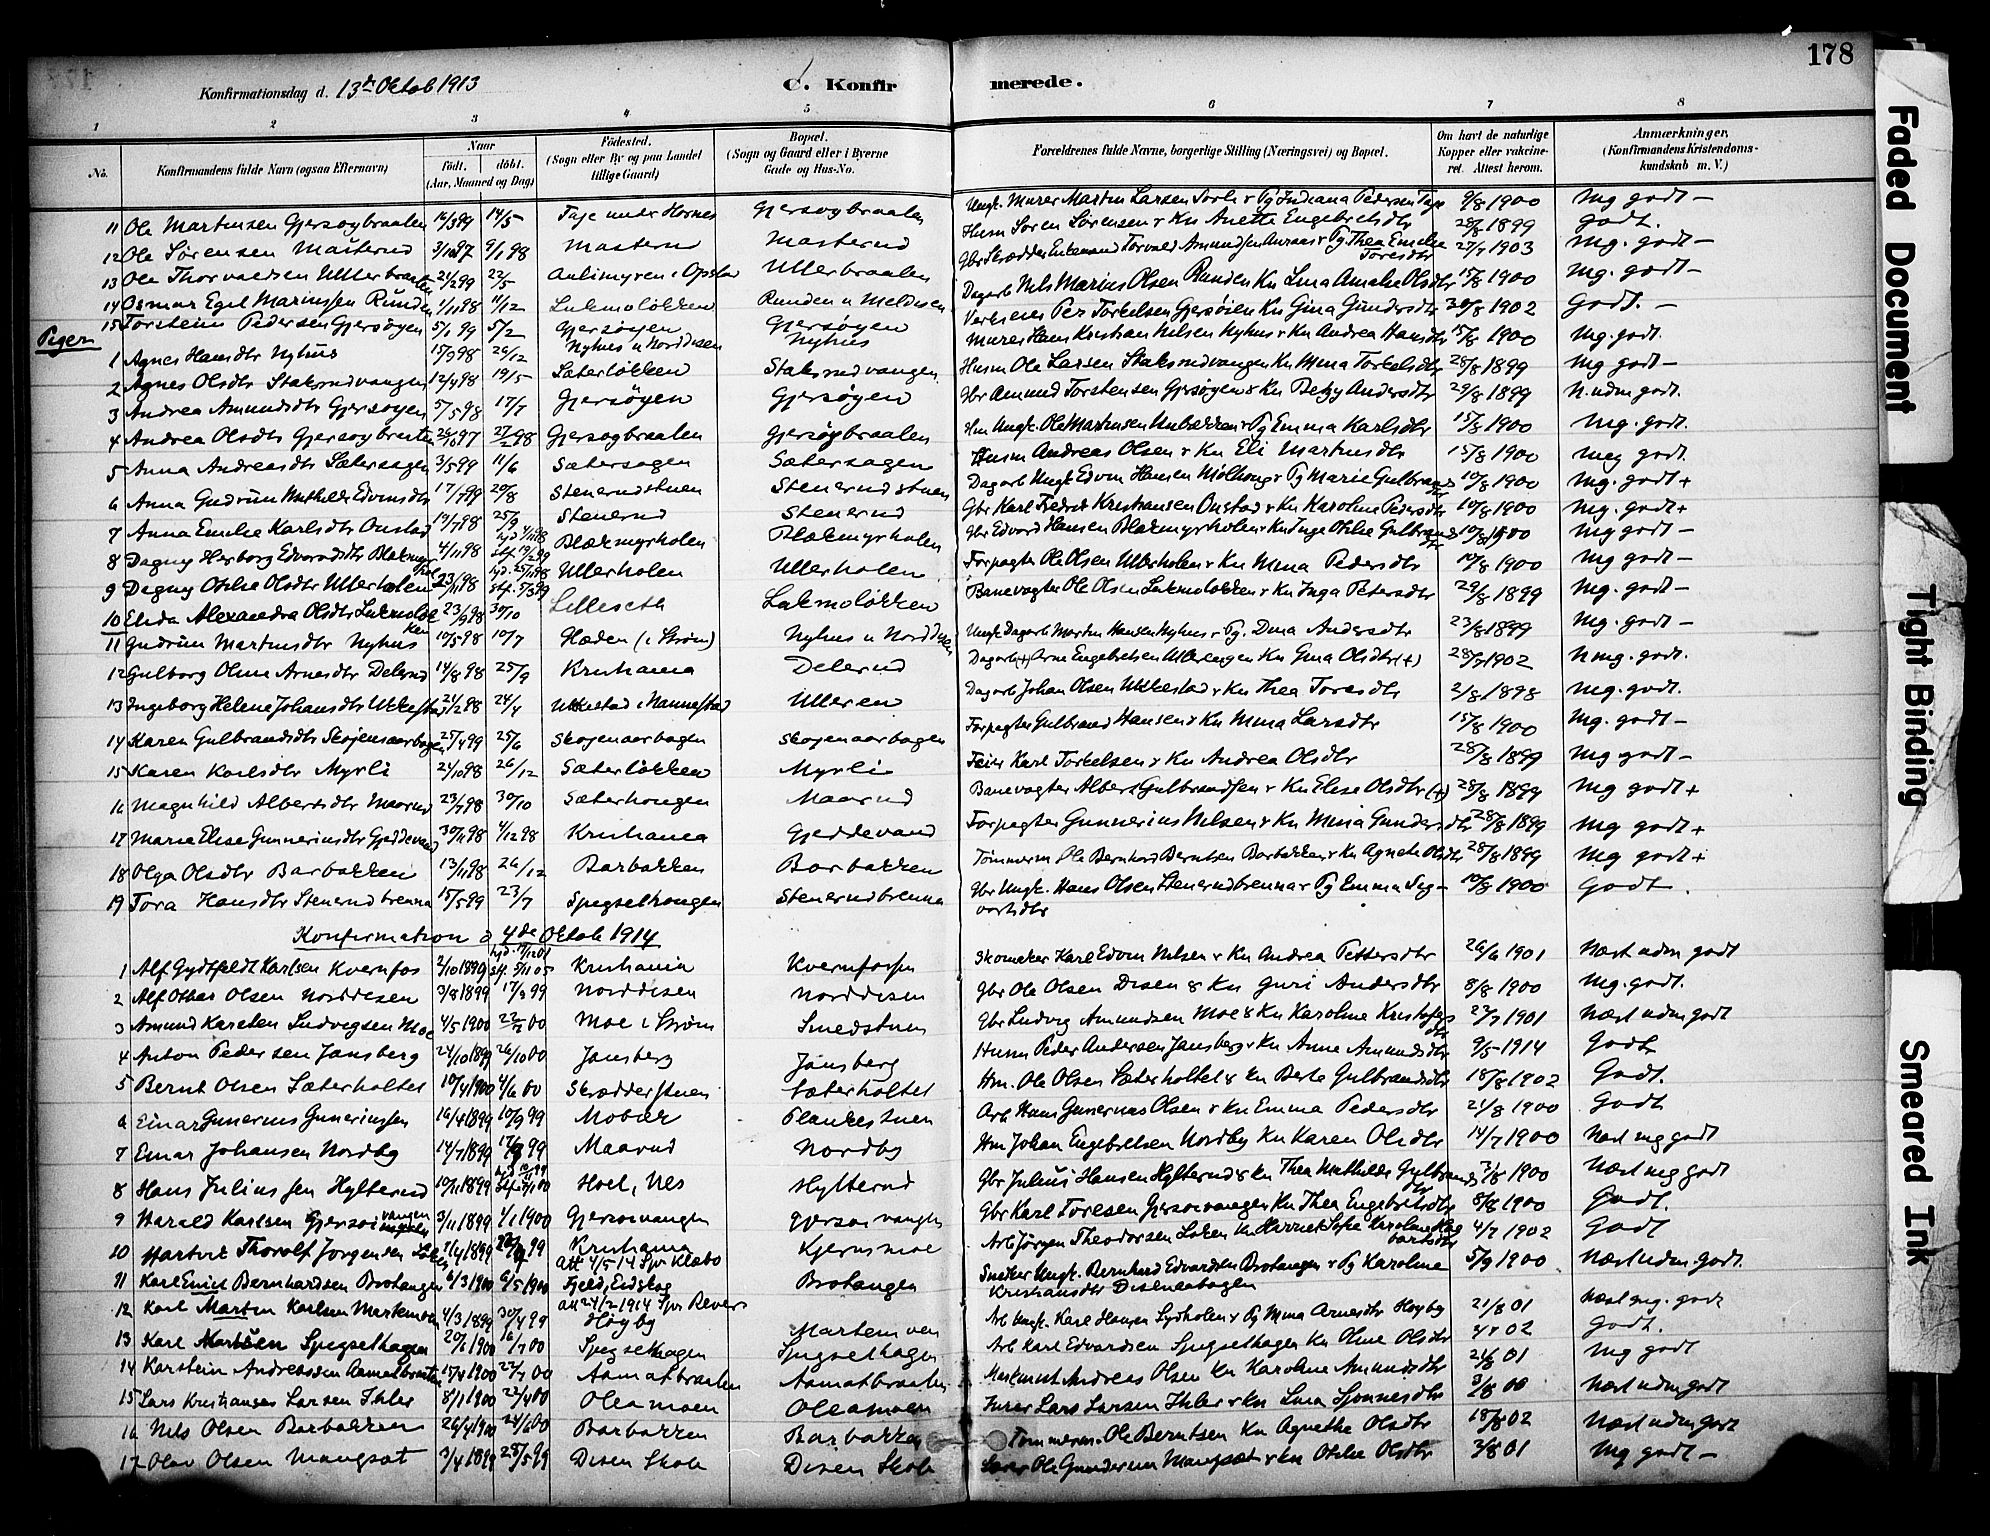 178
Konfirmationsdag d. 13de Oktob 1913
C. Konfir merede.
1 2 3 4 5 6 7 8
No. Konfirmandens fulde Navn (ogsaa Efternavn) Naar født. døbt. (Aar, Maaned og Dag) Fødested. (Sogn eller By og paa Landet tillige Gaard) Bopæl. (Sogn og Gaard eller i Byerne Gade og Hus-No. Forældrenes fulde Navne, borgerlige Stilling (Næringsvei) og Bopæl. Om havt de naturlige Kopper eller vakcineret. Attest herom. Anmærkninger, (Konfirmandens Kristendomskundskab m. V.)
11 Ole Martinsen Gjersøybraaten 14/5 Gjersøybraaten Ungk. Murer Martin Larsen 9/8 1900 Mg godt –
12 Ole Sørensen Masterud 3/10 97 9/1 98 Masterud Masterud Husm Søren Sørensen & Kn Anette Engebretsdtr 28/8 1899 godt.
13 Ole Thorvaldsen Ullerbraaten 21/2 99 22/5 Ullerbraaten 27/7 1903 Mg. godt –
14 Osmar Egil Mariussen Runden 1/11 98 11/12 Lukmoløkken Dagarb Nils Marius Olsen Runden Kn Lina Amalie Olsdtr 15/8 1900 Mg. godt –
15 Torstein Pedersen Gjersøyen 5/1 99 5/2 Gjersøyen Gjersøyen Per Torkelsen Gjersøien Kn Gina Gundersdtr 30/8 1902 Godt. –
Piger
1 Agnes Hansdtr Nyhus 15/9 98 26/12 Nyhus u Norddisen Nyhus Murer Hans Kristian Nilsen Nyhus & Kn Andrea Hansdtr 15/8 1900 Mg. godt.
2 Agnes Olsdtr Staksrudvangen 12/4 98 19/5 Sæterløkken Staksrudvangen Husm Ole Larsen Staksrudvangen Kn Mina Torkelsdtr 28/8 1899 Mg godt –
3 Andrea Amundsdtr Gjersøyen 5/5 98 17/7 Gjersøyen Gjersøyen Gbr Amund Torstensen Gjersøyen & Kn Betzy Andersdtr 29/8 1899 N. udm godt.
4 Andrea Olsdtr Gjersøybraten 26/10 97 27/2 98 Gjersøybraaten Gjersøybraaten Ole Martinsen & Pg Emma Karlsdtr 15/8 1900 Mg. godt.
5 Anna Andreasdtr Sætersagen 3/5 99 11/6 Sætersagen Sætersagen Husm Andreas Olsen & Kn Eli Martinsdtr 15/8 1900 meg godt.
6 Anna Gudrun Mathilde Edvinsdtr 17/7 99 20/8 Stenerudstuen Stenerudstuen Dagarb Ungk Edvin Hansen & Pg Marie Gulbrandsdtr 10/8 1900 Mg. godt +
7 Anna Emilie Karlsdtr Onstad 19/7 98 25/9 Stenerud Stenerud Gbr Karl Fredrik Kristiansen Onstad & Kn Karoline Pedersdtr 10/8 1900 Mg. godt +
8 Dagny Herborg Edvardsdtr 4/11 98 Blækmyrholen Blækmyrholen Gbr Edvard Hansen Blækmyrholen & Kn Inga Otilie Gulbrandsdtr 10/8 1900 Mg godt –
9 Dagny Otilie Olsdtr Ullerholen 23/11 98 Ullerholen Ullerholen Forpagter Ole Olsen Ullerholen & Kn Mina Pedersdtr 10/8 1900 Mg godt –
10 Elida Alexandra Olsdtr Lukmoløkken 23/9 98 30/10 Lilleseth Lukmoløkken Banevogter Ole Olsen Lukmoløkken & Kn Inga Petersdtr 29/8 1899 Mg. godt –
11 Gudrun Martinsdtr Nyhus 10/5 98 10/7 Glæden (i Strøm) Nyhus u Norddisen Ungk Dagarb Martin Hansen Nyhus & Pg. Dina Andersdtr 23/8 1899 Mg. godt –
12 Gulborg Oline Arnesdtr Delerud 14/8 98 25/9 Kristiania Delerud Dagarb (+) Arne Engebretsen Ullerengen Kn Gina Olsdtr (+) 28/7 1902 N mg. godt.
13 Ingeborg Helene Johansdtr Ukkestad 21/2 98 24/4 Ukkestad i Nannestad Ulleren Dagarb Johan Olsen Ukkestad & Kn Thea Toresdtr 2/8 1898 mg. godt.
14 Karen Gulbrandsdtr Skøjenaarbogen 25/4 99 25/6 Skøjenaarbogen Skøjenaarbogen Forpagter Gulbrand Hansen & Kn Mina Larsdtr 15/8 1900 Mg. godt –
15 Karen Karlsdtr Myrli 24/10 98 26/12 Sæterløkken Myrli Karl Torkelsen & Kn Andrea Olsdtr 28/8 1899 Mg godt –
16 Magnhild Albertsdtr Maarud 23/7 98 30/10 Sæterhougen Maarud Banevogter Albert Gulbrandsen & Kn Elise Olsdtr (+) 28/8 1899 Mg godt +
17 Marie Elise Gunneriusdtr Gjeddevand 30/1 98 4/12 98 Kristiania Gjeddevand Forpagter Gunnerius Nilsen & Kn Mina Gundersdtr 28/8 1899 mg godt +
18 Olga Olsdtr Barbakken 13/11 98 26/12 Barbakken Barbakken Tømmerm Ole Bernhard Berntsen Barbakken & Kn Agnete Olsdtr 28/8 1899 Mg godt +
19 Tora Hansdtr Stenerudbrenna 15/5 99 23/7 Spigsethougen Stenerudbrenna Gbr Ungk. Hans Olsen Stenerudbrenna & Pg Emma Sigvartsdtr 10/8 1900 Godt.
Konfirmation d 4de Oktob 1914
1 Alf Gydtfeldt Karlsen Kvernfos 2/10 1899 Kristiania Kvernfossen Skomaker Karl Edvin Nilsen & Kn Andrea Pettersdtr 26/6 1901 Næst udm godt
2 Alf Ottar Olsen Norddisen 3/8 1899 17/9 99 Norddisen Norddisen Gbr Ole Olsen Disen & Kn Guri Andersdtr 8/8 1900 Mg. godt.
3 Amund Karsten Ludvigsen Moe 4/5 1900 00 Moe i Strøm Smedstuen Gbr Ludvig Amundsen Moe & Kn Karoline Kristofersdtr 22/7 1901 Næst udm godt
4 Anton Pedersen Jansberg 24/10 1899 26/10 00 Jansberg Jansberg Husm Peder Andersen Jansberg & Kn Anne Amundsdtr 9/5 1914 Godt
5 Bernt Olsen Sæterholtet 10/4 1900 4/6 00 Skrædderstuen Sæterholtet Hm. Ole Olsen Sæterholtet & Kn Berte Gulbrandsdtr 18/8 1902 Godt.
6 Einar Gunerius Guneriussen 16/4 1899 10/9 99 Mobæk Plankestuen Arb Hans Gunerius Olsen & Kn Emma Pedersdtr 21/8 1900 Godt
7 Einar Johansen Nordby 14/7 1899 99 Maarud Nordby Hm Johan Engebretsen Nordby Kn Karen Olsdtr 14/7 1900 Næst mg godt
8 Hans Juliussen Hylterud 10/11 1899 Hoel, Nes Hylterud Gbr Julius Hansen Hylterud & Kn Thea Mathilde Gulbrandsdtr 1900 Næst meg godt
9 Harald Karlsen Gjersøivangen 3/11 1899 1/1 1900 Gjersøivangen Gjersøivangen Gbr Karl Toresen Gjersøivangen Kn Thea Engebretsdtr 8/8 1900 Godt.
10 Hartvik Thorolf Jørgensen 1/4 1899 99 Kristiania Att 4/5 14 Spr Klæbo Kjernsmoe Arb Jørgen Theodorsen Kn Harriet Sofie Karoline 4/7 1902 Godt
11 Karl Emil Bernhardsen Brotangen 6/3 1900 6/5 1900 Fjeld, Eidskog Brotangen Snekker Ungk. Bernhard Edvardsen Brotangen & Pg Karoline Kristiansdtr Disenaabogen 5/9 1900 Næst udm. godt.
12 Karl Martin Karlsen Martemoen 4/3 1899 30/4 99 att 24/2 1914 Spr Revers Høyby Martemoen Arb Ungk. Karl Hansen Sydholen & Pg Mina Arnesdtr Høyby 21/8 01 Næst mg. godt
13 Karl Spigsethagen 20/6 1900 00 Spigsethagen Spigsethagen Arb Karl Edvardsen Spigsethagen Kn Oline Olsdtr 02 Godt.
14 Karstein Andreassen Aamotbraaten 15/4 1900 22/7 00 Aamotbraaten Aamotbraaten Andreas Olsen Kn Karoline Amundsdtr 01 Mg godt
15 Lars Kristianses Larsen Ihler 8/1 1900 22/4 00 Oleamoen Oleamoen Lars Larsen Ihler & Kn Lina 3/8 00 Næst udm godt
16 Nils Olsen Barbakken 26/4 1900 24/6 00 Barbakken Barbakken Tømmerm. Ole Berntsen Kn Agnethe Olsdtr 18/8 02 Næst udm godt
17 Olav Olsen Mangsæt 3/4 1899 28/5 99 Disen Skole Disen Skole Ole Gundersen Mangsæt & Kn Otilie Olsdtr 3/8 01 Mg godt –
Faded Document
Tight Binding
Smeared Ink